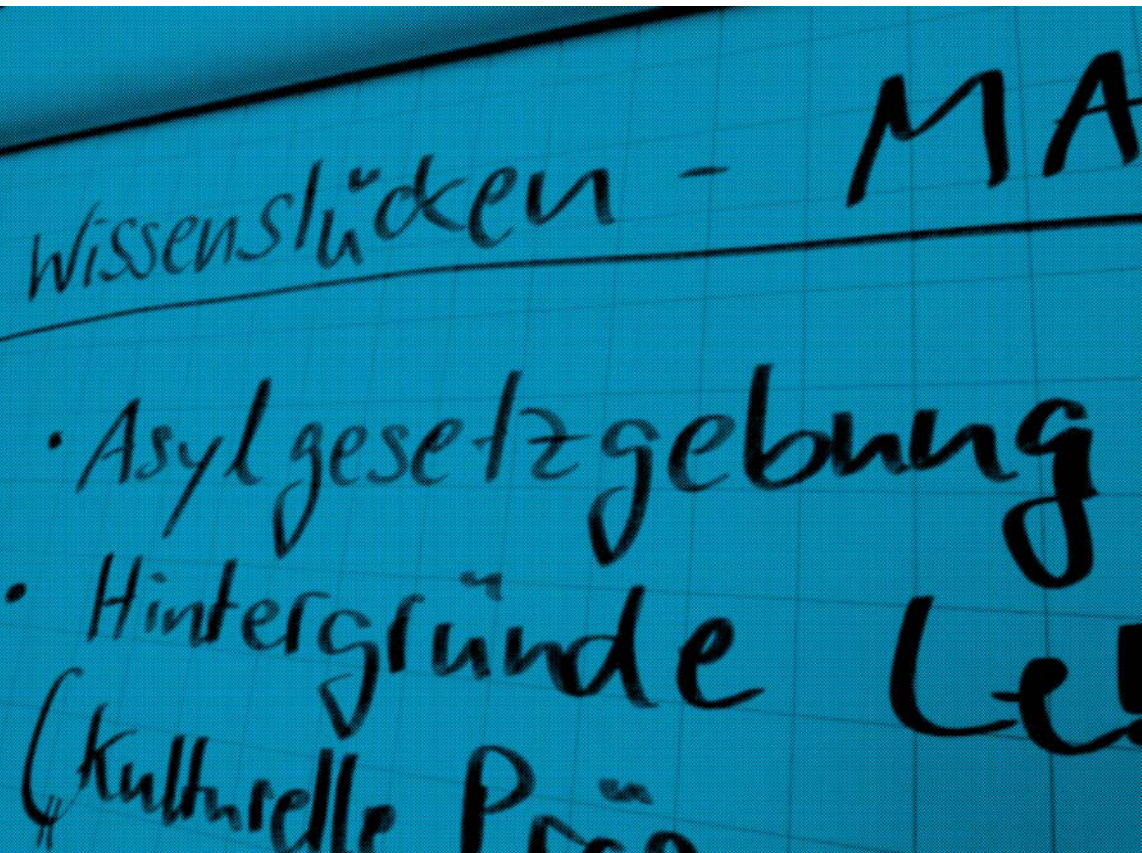 Wissenslücken - MA
• Asylgesetzgebung
• Hintergründe Le
(Kulturelle Präg